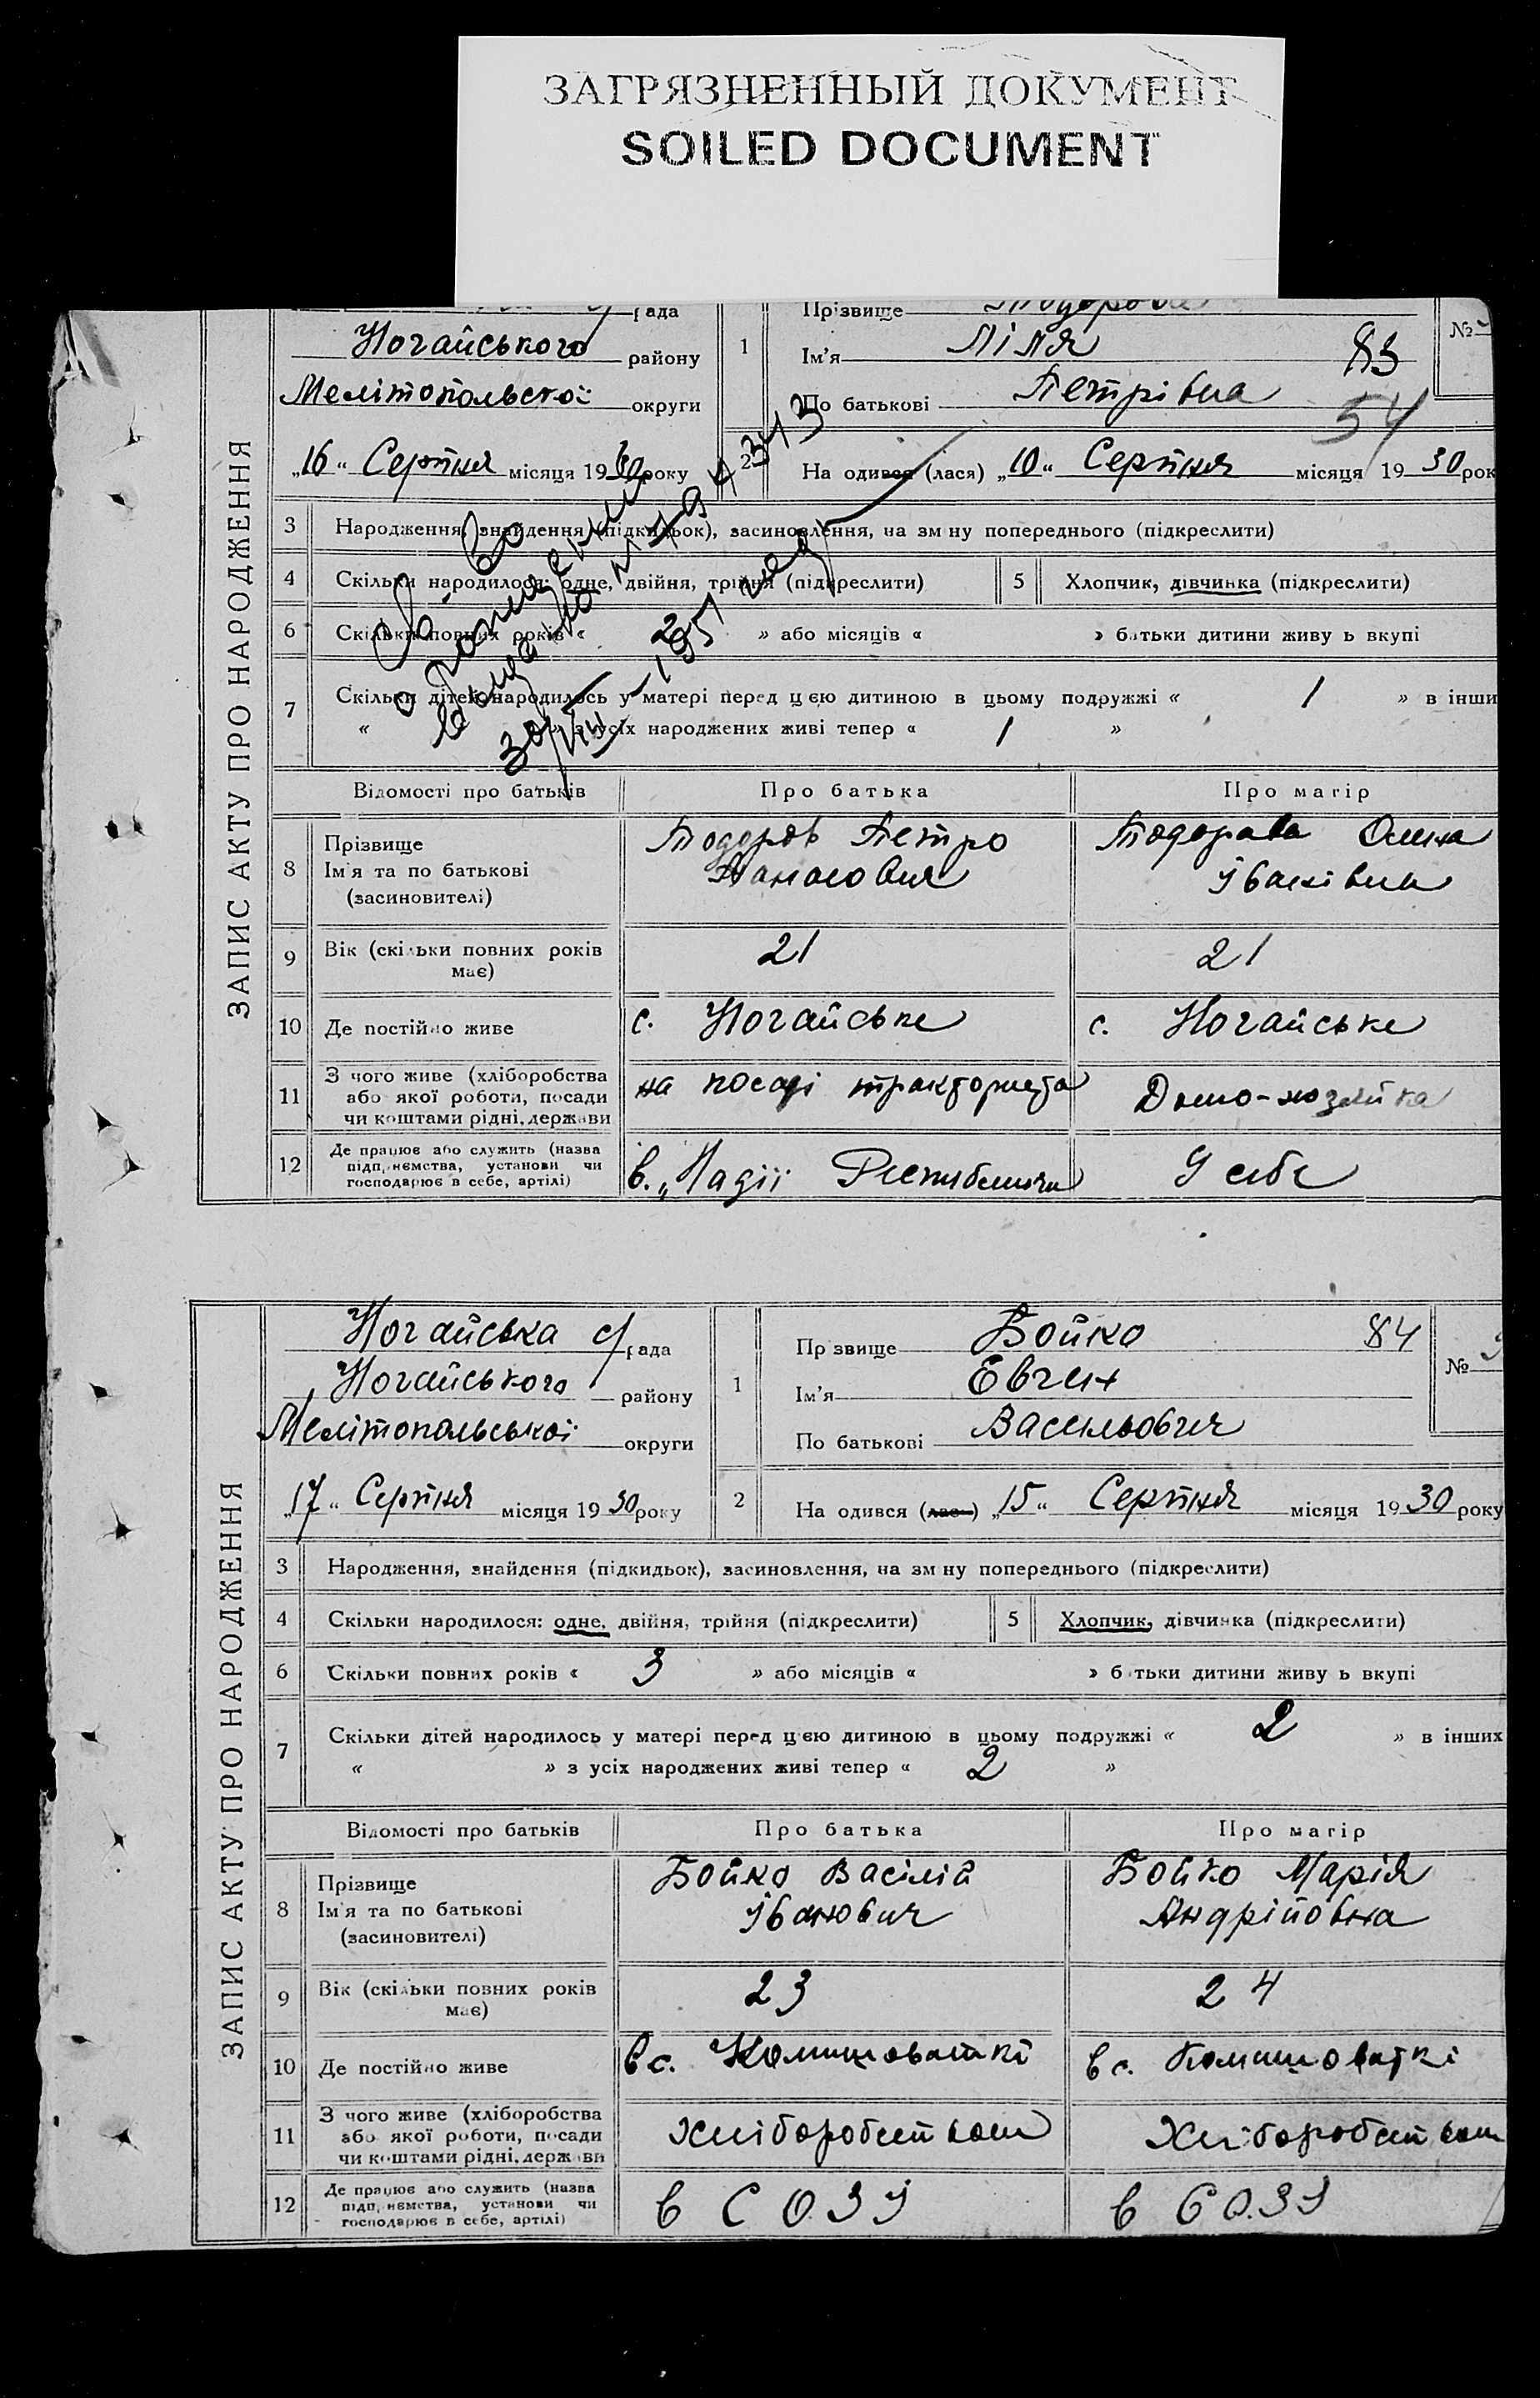 ЗАГРЯЗНЕННЫЙ ДОКУМЕНТ
SOILED DOCUMENT
ЗАПИС АКТУ ПРО НАРОДЖЕННЯ
рада
Ногайського району
Мелітопольскої округи
„16“ Серпня місяця 1930 року
1
Прізвище Тодорова
Ім'я Ліля 83
По батькові Петрівна
54
№
2 На одився (лася) „10“ Серпня місяця 1930 рок
3 Народження, знайдення (підкидьок), засиновлення, на зм ну попереднього (підкреслити)
4 Скільки народилося: одне, двійня, трійня (підкреслити)
5 Хлопчик, дівчинка (підкреслити)
6 Скільки повних років « 2 » або місяців « » батьки дитини живу ь вкупі
7 Скільки дітей народилось у матері перед цією дитиною в цьому подружжі « 1 » в інши
« » з усіх народжених живі тепер « 1 »
Св. во
Відомості про батьків Про батька Про матір
8 Прізвище
Ім'я та по батькові
(засиновителі)
Тодоров Петро
Панасович
Тодорова Олена
Іванівна
9 Вік (скільки повних років
має)
21 21
10 Де постійно живе с. Ногайське с. Ногайське
11 З чого живе (хліборобства
або якої роботи, посади
чи коштами рідні, держави
на посаді тракториста Домо-хозяйка
12 Де працює або служить (назва
підприємства, установи чи
господарює в себе, артілі)
в. „Надії У себе
ЗАПИС АКТУ ПРО НАРОДЖЕННЯ
Ногайська с/рада
Ногайського району
Мелітопольської округи
„17“ Серпня місяця 1930 року
1
Пр звище Бойко 84
Ім'я Евген
По батькові Васильович
№
2 На одився (лас ) „15“ Серпня місяця 1930 року
3 Народження, знайдення (підкидьок), засиновлення, на зм ну попереднього (підкреслити)
4 Скільки народилося: одне, двійня, трійня (підкреслити)
5 Хлопчик, дівчинка (підкреслити)
6 Скільки повних років « 3 » або місяців « » б тьки дитини живу ь вкупі
7 Скільки дітей народилось у матері перед цією дитиною в цьому подружжі « 2 » в інших
« » з усіх народжених живі тепер « 2 »
Відомості про батьків Про батька Про матір
8 Прізвище
Ім'я та по батькові
(засиновителі)
Бойко Васілій
Іванович
Бойко Марія
Андрійовна
9 Вік (скільки повних років
має)
23 24
10 Де постійно живе в с. Комишоваткі в с. Комишоваткі
11 З чого живе (хліборобства
або якої роботи, посади
чи коштами рідні, держави
Хліборобством Хліборобством
12 Де працює або служить (назва
підприємства, установи чи
господарює в себе, артілі)
в СОЗУ в СОЗУ